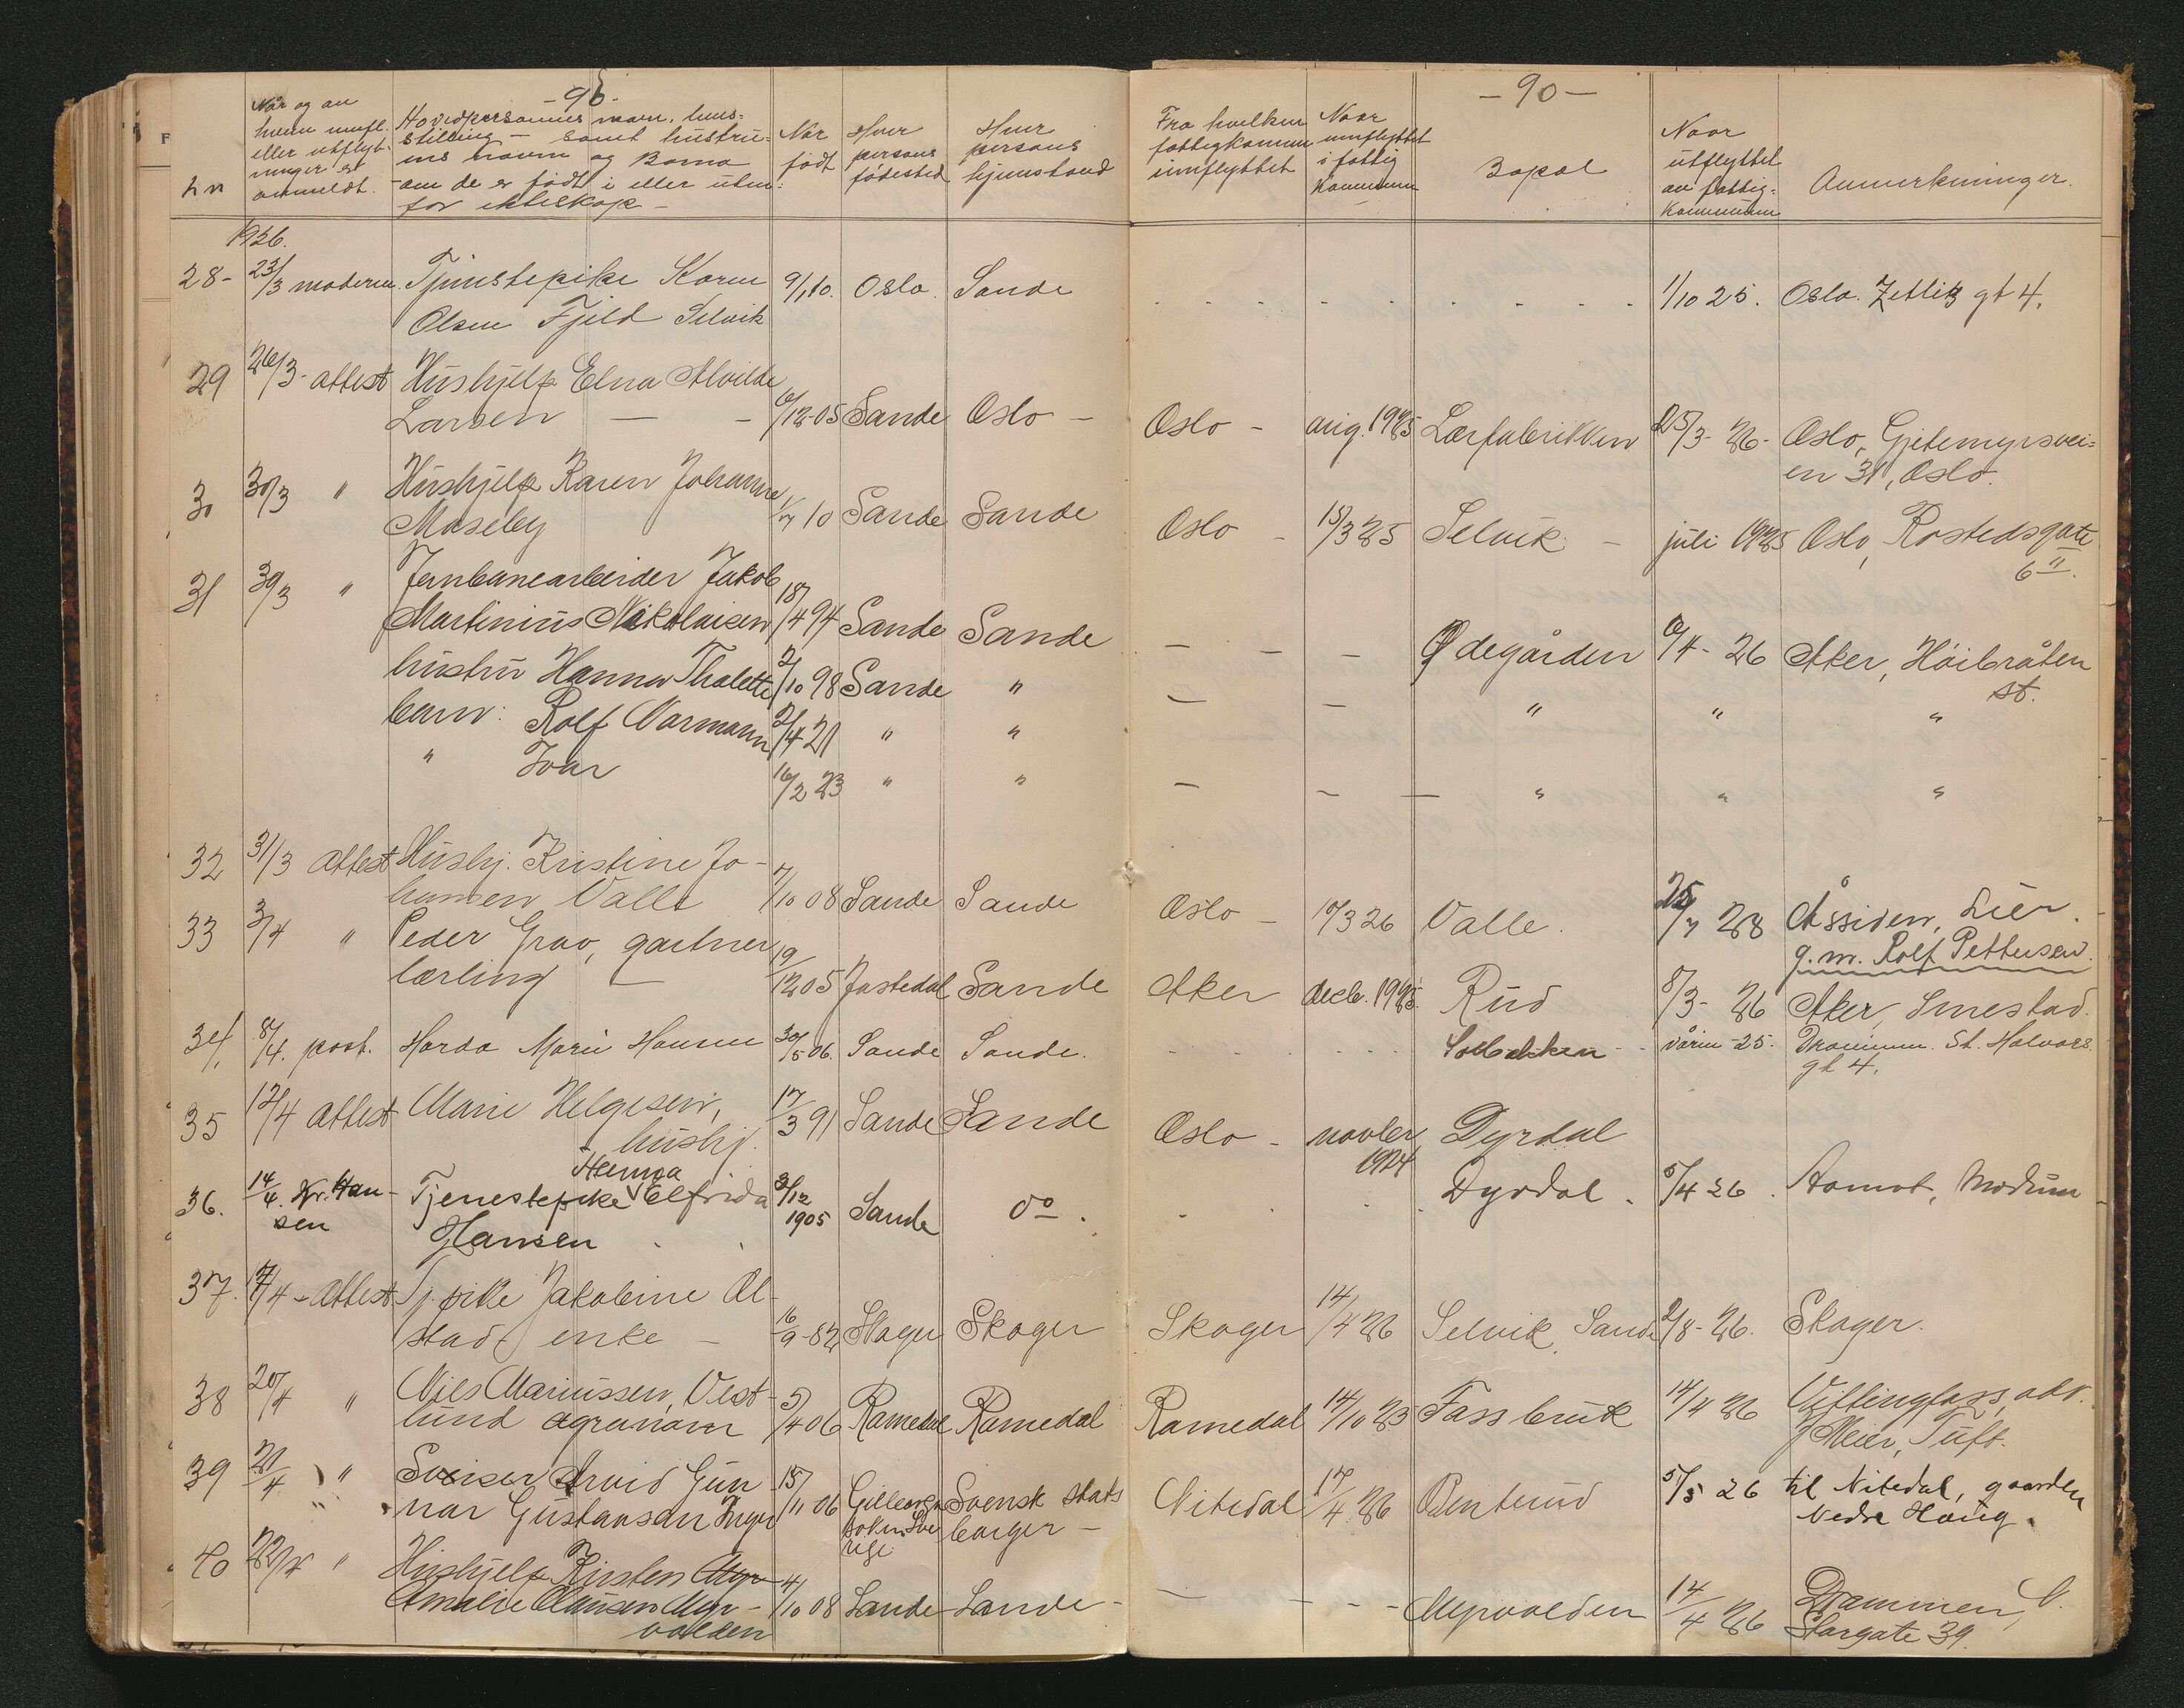 - 90 -
Når og av
hvem innfl.
eller utflyt-
ninger er
anmeldt.
Hovedpersonens navn, livs-
stilling - samt hustru-
ens navn og Barna
- om de er født i eller uten-
for ekteskap -
Når
født
Hver
persons
fødested
Hver
persons
hjemstavn
Fra hvilken
fattigkommune
innflyttet
Naar
innflyttet
i fattig
kommunen
Bopæl
Naar
utflyttet
av fattig-
kommunen
Anmerkninger.
1926.
28- 23/3 moderen. Tjenstepike Karen 9/1 10. Oslo. Sande 1/10 25. Oslo. Zetlitz gt 4.
Olsen Fjeld Selvik
29 26/3 - attest Hushjelp Elna Alvilde
Larsen — - 6/12-05 Sande Oslo - Oslo - aug. 1925 Lærfabrikken 25/3- 26- Oslo, Gjetemyrsvei-
en 31, Oslo.
30 30/3 " Hushjelp Karen Johanne
Maseby 1/7 10 Sande Sande Oslo - 15/3 25 Selvik - juli 1925 Oslo, Rostedsgate
6 II.
31 30/3 " Jernbanearbeider Jakob
Martinius Nikolaisen 18/4 94 Sande Sande — - — Ødegården 6/4- 26 Aker, Høibråten
st.
hustru Hanna Thalette 2/10 98 Sande " — — " " "
barn: Rolf Normann 2/4 21 " "
" Ivar 16/2 23 " " — — — " " "
32 31/3 Attest Hushj. Kristine Jo-
hansen Valle 7/10 08 Sande Sande Oslo - 10/3 26 Valle. 25/7 28 Åssiden, Lier.
g.m. Rolf Pettersen.
33 3/4 " Peder Grav, gartner
lærling — 19/12 05 Jostedal Sande Aker decb. 1925. Rud 8/3- 26 Aker, Smestad.
34. 8/4. post. Harda Marie Hansen 30/5 06. Sande Sande. Solbakken - våren -25. Drammen. St. Halvors
gt 4.
35 12/4 Attest Marie Helgesen, 17/3 91 Sande Sande Oslo - novbr. Dyrdal
- hushj. 1924
Henna
36. 14/4. Kr. Han- Tjenestepike Elfrida 3/12 Sande do . Dyrdal. 5/4 26. Aamot, Modum
sen Hansen 1905
37. 17/4 - Attest Tj.pike Jakobine Al-
stad, enke - 16/9-82 Skoger Skoger Skoger 14/4 26 Selvik, Sande 2/8- 26. Skoger.
38 20/4 " Nils Mariussen, Vest-
lund agronom 5/4 06 Ramedal Ramedal Ramedal 14/10 25 Fass bruk 14/4 26
Meier, Tuft.
39 21/4 " Sveiser Arvid Gun
nar Gustavsen Inger 15/11 06 Svensk stats Nitedal 17/4 26 5/5 26 til Nitedal, gaarden
sokn, Sve borger - Nedre Haug.
rige.
40 22/4 " Hushjelp Kirsten Myr
Amalie Clausen Myr- 4/10 08 Sande Sande - — - - Myrvolden 14/4 26 Drammen,
volden Storgate 39.